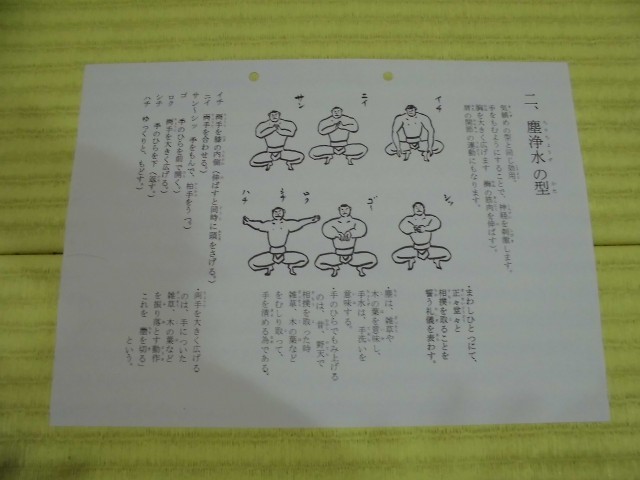 二、塵浄水の型
気鎮めの型と同じ姿勢。
手をもむようにすることで、神経を刺激します。
胸を大きく広げます（胸の筋肉を伸ばす）。
肩の関節の運動にもなります。
イチ
ニイ
サン
シッ
ゴー
ロク
シチ
ハチ
イチ　両手を膝の内側（伸ばすと同時に頭をさげる。）
ニイ　両手を合わせる。）
サン～シッ　手をもんで、拍手をうつ。）
ゴ　手のひらを前で開く。）
ロク　両手を大きく広げる。）
シチ　手のひらを下へ返す。）
ハチ　ゆっくりと、もどす。）
・まわしひとつにて、
正々堂々と
相撲を取ることを
誓う礼儀を表わす。
・塵は、雑草や
木の葉を意味し、
手水は、手洗いを
意味する。
・手のひらでもみ上げる
のは、昔、野天で
相撲を取った時
雑草、木の葉など
をむしり取って、
手を清める為である。
・両手を大きく広げる
のは、手についた
雑草、木の葉など
を振り落とす動作
これを　塵を切る
という。